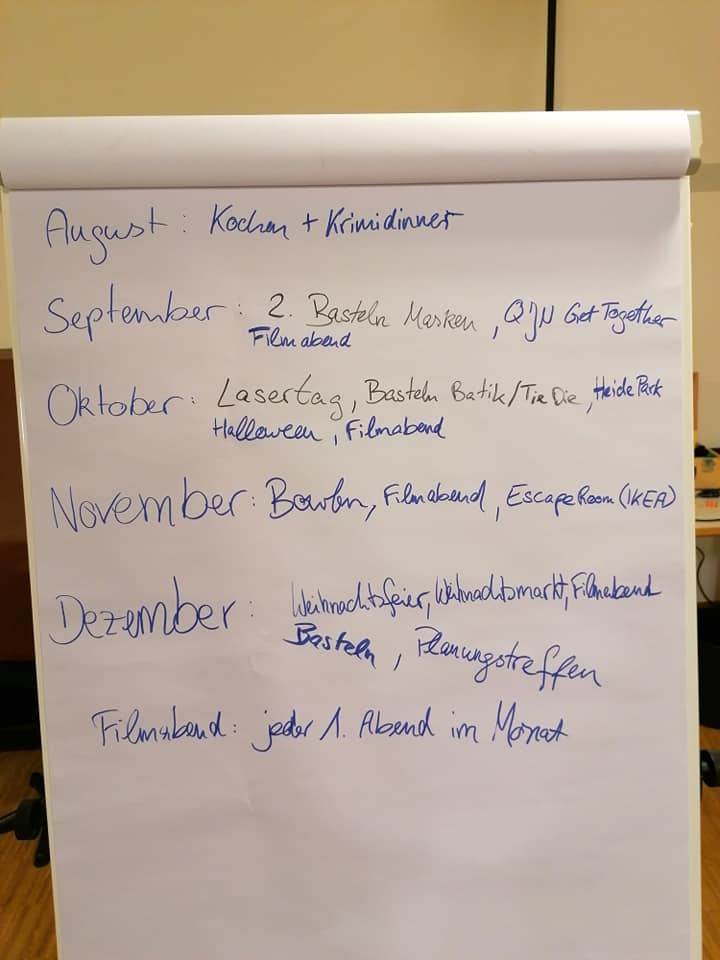 August: Kochen + Krimidinner
September: 2. Basteln Masken, QJN Get Together
Filmabend
Oktober: Lasertag, Basteln Batik/Tie Die, Heide Park
Halloween, Filmabend
November: Bowlen, Filmabend, Escape Room (IKEA)
Dezember: Weihnachtsfeier, Weihnachtsmarkt, Filmabend
Basteln, Planungstreffen
Filmabend: jeder 1. Abend im Monat